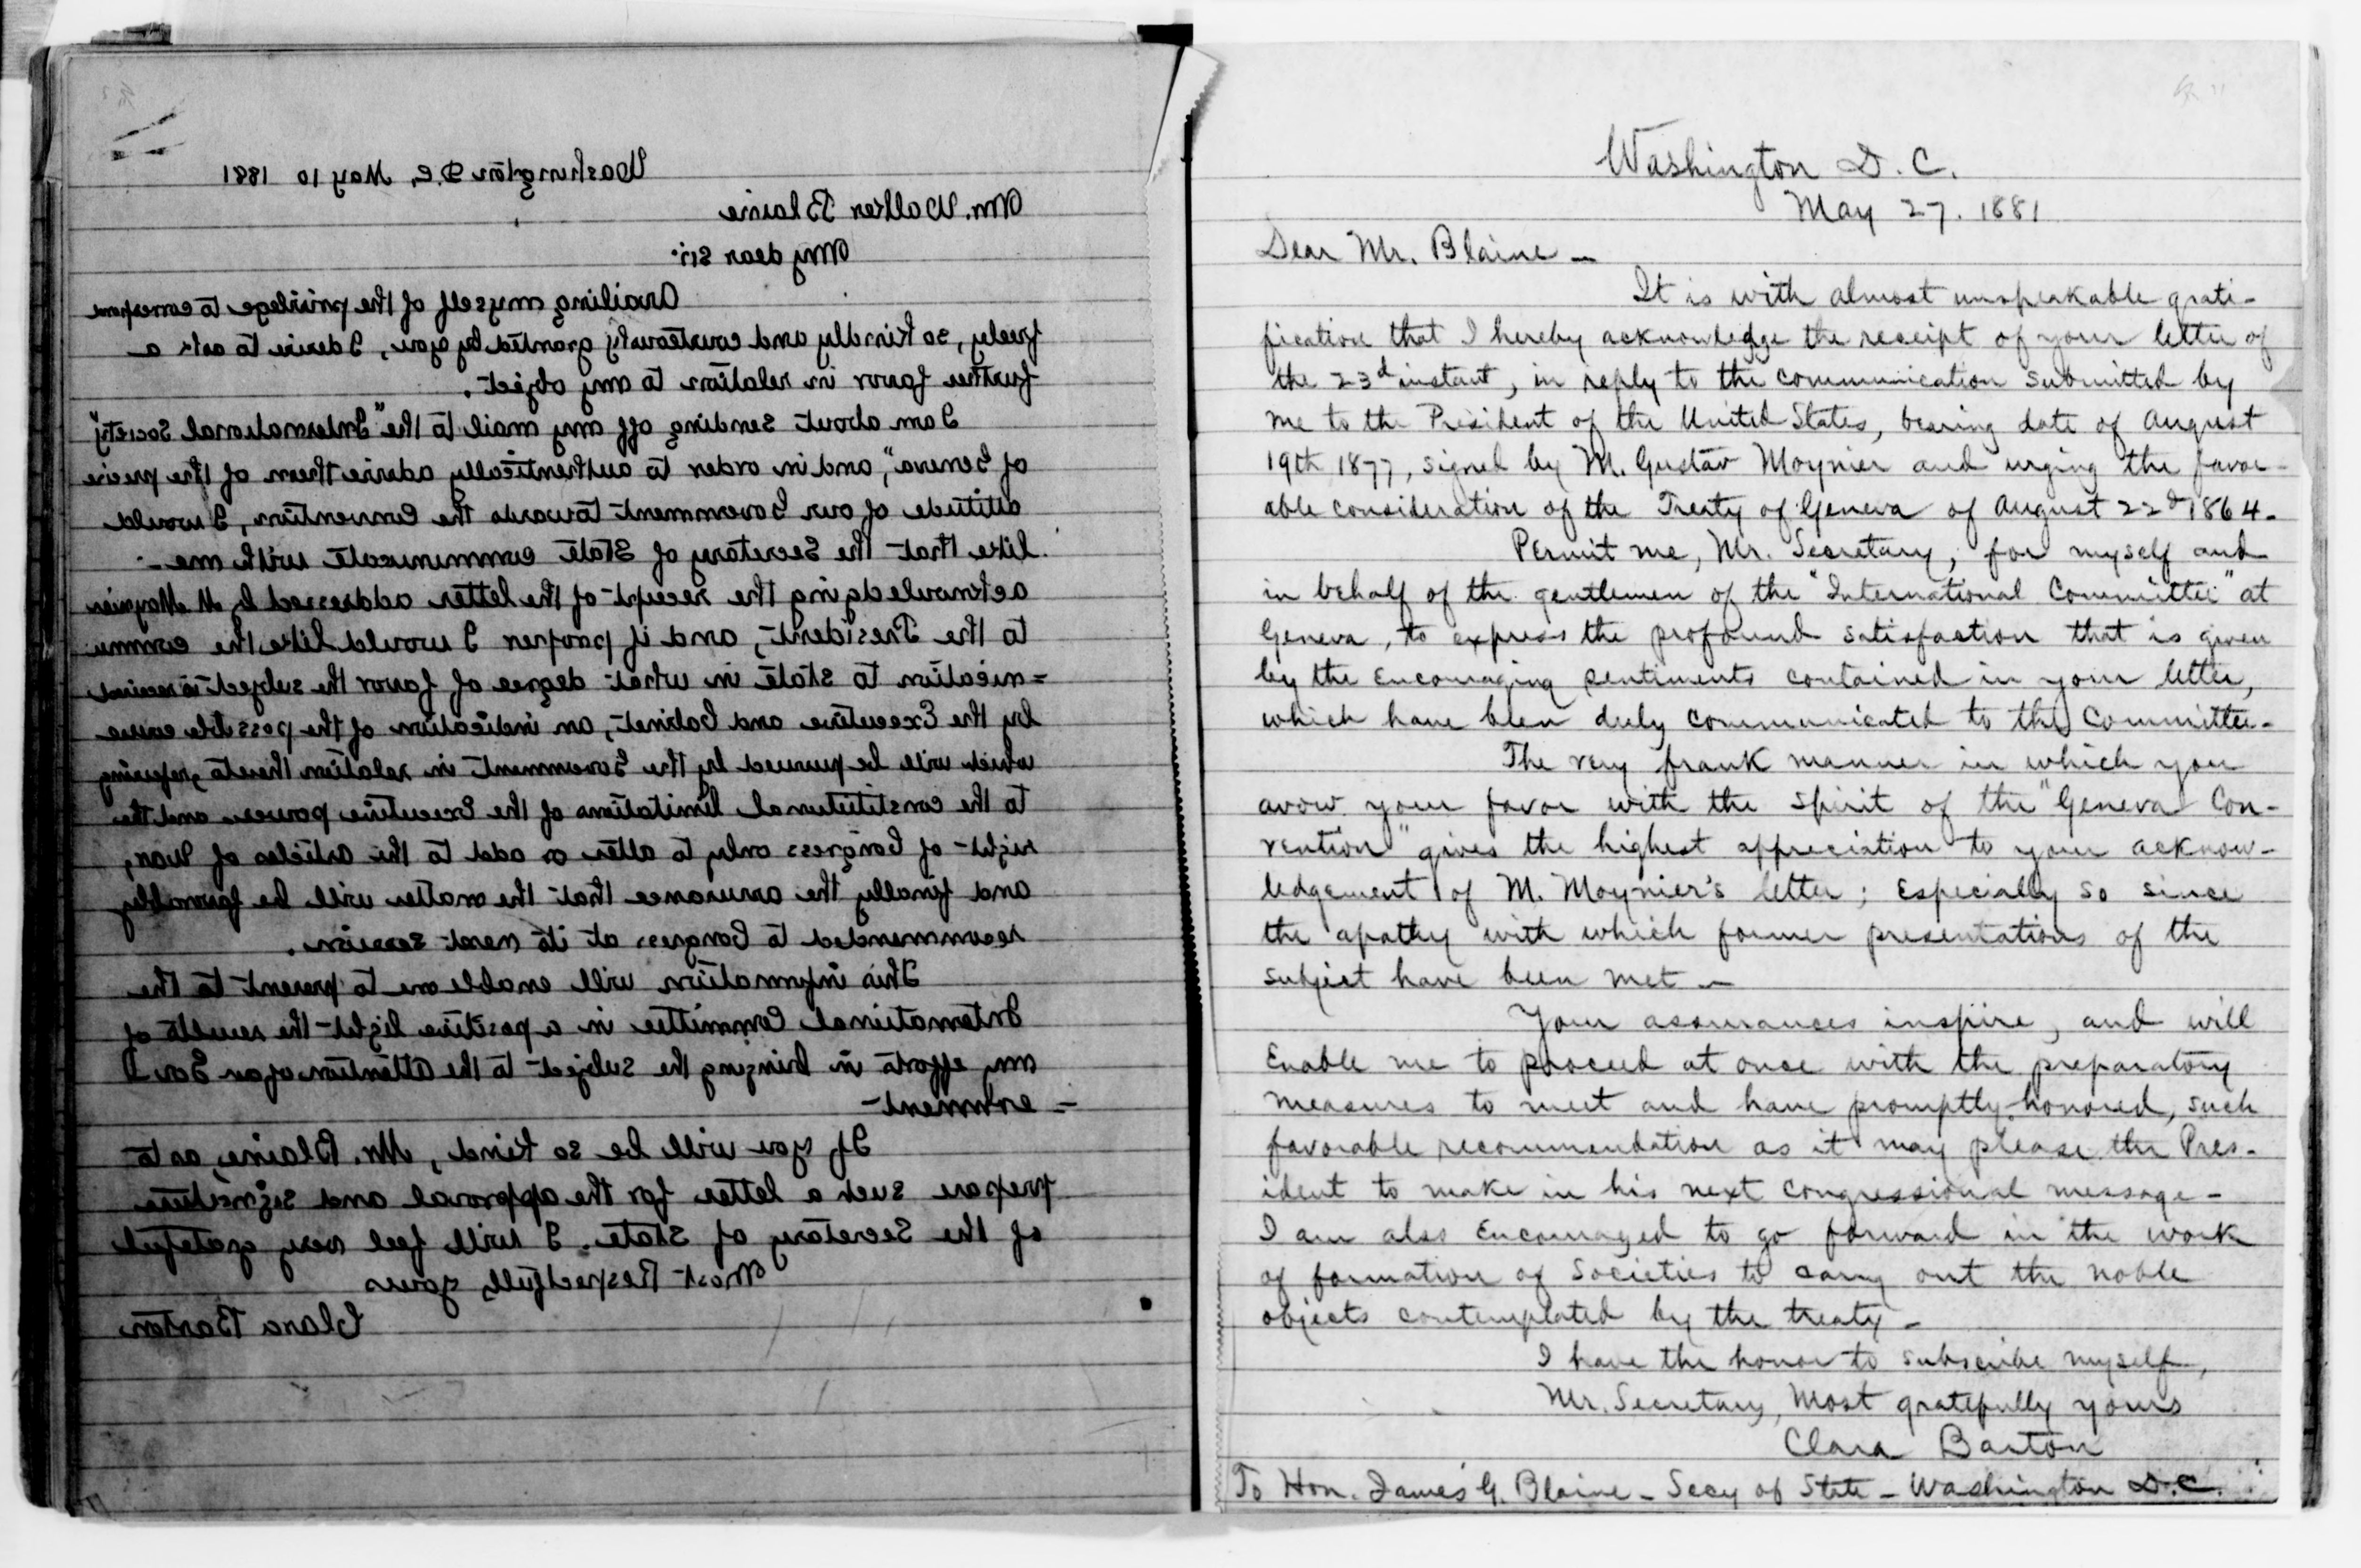 Washington D.C., May 10 1881
Mr. Walker Blaine
My dear Sir:
Availing myself of the privilege to correspond
freely, so kindly and courteously granted by you, I desire to ask a
further favor in relation to my object.
I am about sending off my mail to the "International Society"
of Geneva", and in order to authentically advise them of the precise
attitude of our Government towards the Convention, I would
like that the Secretary of State communicate with me -
acknowledging the receipt of the letter addressed by M Moynier
to the President, and if proper I would like the commu
=nication to state in what degree of favor the subject is received
by the Executive and Cabinet, an indication of the possible course
which will be pursued by the Government in relation thereto, referring
to the constitutional limitations of the Executive powers and the
right of Congress only to alter or add to the articles of War,
and finally the assurance that the matter will be favorably
recommended to Congress at its next session.
This information will enable me to present to the
International Committee in a positive light the results of
my efforts in bringing the subject to the attention of our Gov
- ernment -
If you will be so kind, Mr. Blaine, as to
prepare such a letter for the approval and signature
of the Secretary of State. I will feel very grateful
Most Respectfully yours
Clara Barton
Washington D. C.
May 27. 1881
Dear Mr. Blaine -
It is with almost unspeakable grati-
fication that I hereby acknowledge the receipt of your letter of
the 23d instant, in reply to the communication submitted by
me to the President of the United States, bearing date of August
19th 1877, signed by M. Gustav Moynier and urging the favor-
able consideration of the Treaty of Geneva of August 22d 1864.
Permit me, Mr. Secretary, for myself and
in behalf of the gentlemen of the "International Committee" at
Geneva, to express the profound satisfaction that is given
by the encouraging sentiments contained in your letter,
which have been duly communicated to the Committee.
The very frank manner in which you
avow your favor with the spirit of the "Geneva Con-
vention" gives the highest appreciation to your acknow-
ledgement of M. Moynier's letter; Especially so since
the apathy with which former presentations of the
subject have been met -
Your assurances inspire, and will
Enable me to proceed at once with the preparatory
measures to meet and have promptly honored, such
favorable recommendation as it may please the Pres-
ident to make in his next congressional message -
I am also Encouraged to go forward in the work
of formation of Societies to carry out the noble
objects contemplated by the treaty -
I have the honor to subscribe myself,
Mr. Secretary, Most gratefully yours
Clara Barton
To Hon. James G. Blaine - Secy of State - Washington D.C.